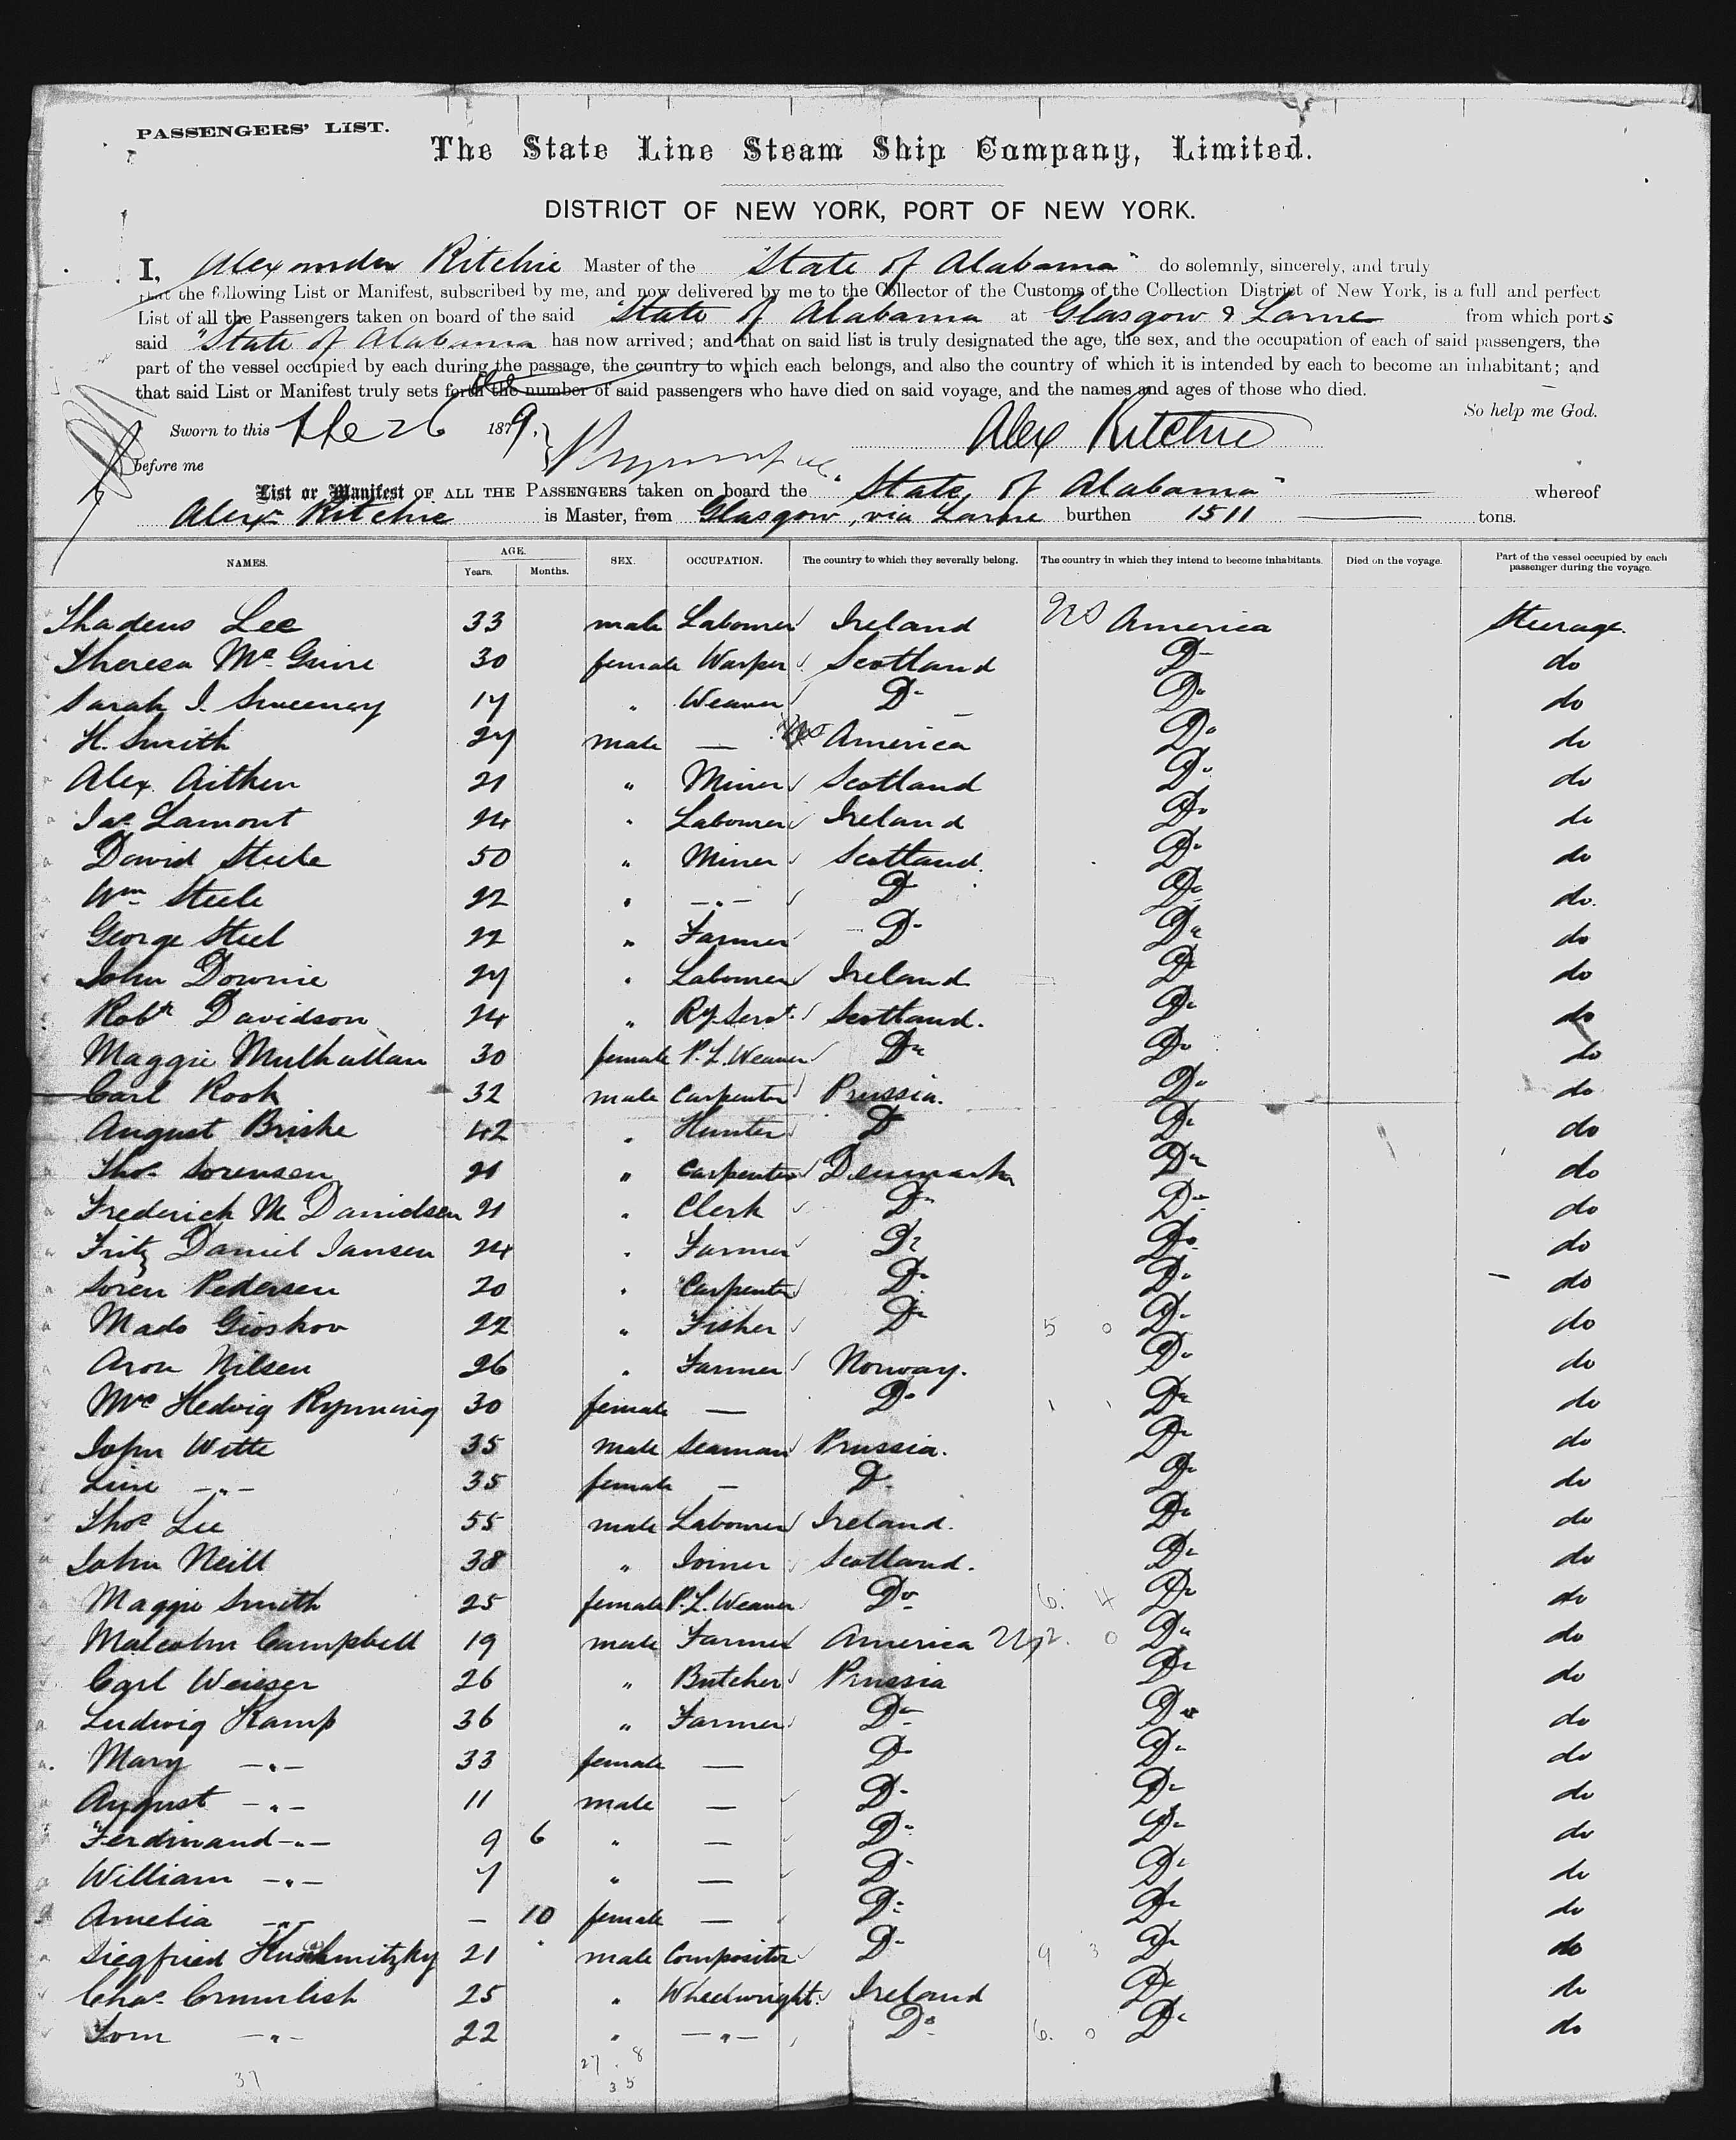 PASSENGERS' LIST.
The State Line Steam Ship Company, Limited.
DISTRICT OF NEW YORK, PORT OF NEW YORK.
I, Alexander Ritchie Master of the "State of Alabama" do solemnly, sincerely, and truly
that the following List or Manifest, subscribed by me, and now delivered by me to the Collector of the Customs of the Collection District of New York, is a full and perfect
List of all the Passengers taken on board of the said "State of Alabama at Glasgow & Larne from which ports
said "State of Alabama has now arrived; and that on said list is truly designated the age, the sex, and the occupation of each of said passengers, the
part of the vessel occupied by each during the passage, the country to which each belongs, and also the country of which it is intended by each to become an inhabitant; and
that said List or Manifest truly sets forth the number of said passengers who have died on said voyage, and the names and ages of those who died.
So help me God.
Sworn to this 26 1879. Alex Ritchie
before me
List or Manifest OF ALL THE PASSENGERS taken on board the "State of Alabama" whereof
Alexr Ritchie is Master, from Glasgow, via Larne burthen 1511 tons.
NAMES. AGE. Years. Months. SEX. OCCUPATION. The country to which they severally belong. The country in which they intend to become inhabitants. Died on the voyage. Part of the vessel occupied by each passenger during the voyage.
Thadeus Lee 33 male Labourer Ireland US America Steerage.
Theresa Mc Guire 30 female Warper Scotland Do do
Sarah J. Sweeney 17 " Weaver Do Do do
H. Smith 27 male — America Do do
Alex Aitken 21 " Miner Scotland Do do
Jas. Lamont 24 " Labourer Ireland Do do
David Steele 50 " Miner Scotland. Do do
Wm Steele 22 " —"— Do Do do.
George Steel 22 " Farmer Do Do do
John Downie 27 " Labourer Ireland Do do
Robt Davidson 24 " Ry. Servt. Scotland. Do do
Maggie Mulhallan 30 female P.L. Weaver Do Do do
Carl Rook 32 male Carpenter Prussia. Do do
August Briske 42 " Hunter Do Do do
Thos Sorensen 21 " Carpenter Denmark Do do
Frederich M Danidsen 21 " Clerk Do Do do
Fritz Daniel Jansen 24 " Farmer Do Do do
Soren Pedersen 20 " Carpenter Do Do do
Mads Gioskov 22 " Fisher Do 5 0 Do do
Aron Nilsen 26 " Farmer Norway. Do do
Mrs Hedvig Rynning 30 female — Do 1 1 Do do
John Witte 35 male Seaman Prussia. Do do
Line —"— 35 female — Do Do do
Thos Lee 55 male Labourer Ireland. Do do
John Neill 38 " Joiner Scotland. Do do
Maggie Smith 25 female P.L. Weaver Do 6. 4 Do do
Malcolm Campbell 19 male Farmer America 2. 0 Do do
Carl Weieser 26 " Butcher Prussia Do do
Ludwig Kamp 36 " Farmer Do Do do
Mary —"— 33 female — Do Do do
August —"— 11 male — Do Do do
Ferdinand —"— 9 6 " — Do Do do
William —"— 7 " — Do Do do
Amelia —"— — 10 female — Do Do do
Siegfried 21 male Compositor Do 9 3 Do do
Chas. Crumlish 25 " Wheelwright Ireland Do do
Tom —"— 22 " —"— Do 6. 0 Do do
37 27 . 8
35